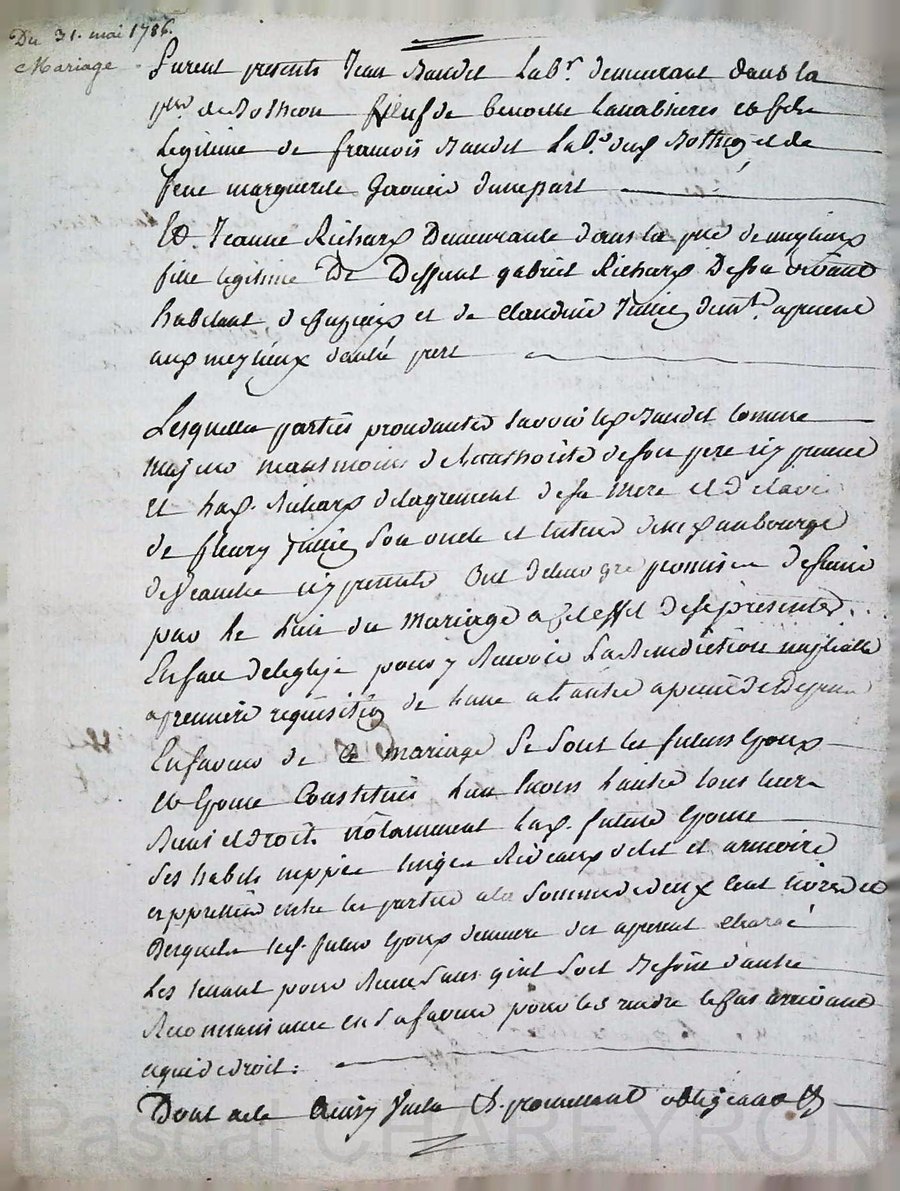 Du 31. mai 1786.
Mariage
Furent presents Jean Baudet Labr. demeurant dans la
veuf de benoitte et fils
Legitime de francois Baudet Labr. et de
feue margueritte d'une part
Et Jeanne Richard Demeurante dans la de
fille legitime De Deffunt gabriel Richard De son vivant
habitant et de Claudine a present
aux d'autre part
Lesquelles parties procedantes savoir led. Baudet comme
majeur neantmoins de L'authorité de son pere icy present
Et lad. Richard de l'agrement de sa mere et de l'avis
de fleury son oncle et tuteur
icy presente Ont de leur gré promis de s'unir
par le Lien du Mariage a Leffet de se presenter
En face de leglise pour y Recevoir La Benediction nuptialle
a premiere requisition de l'une a l'autre a peine de
En faveur de Ce mariage Se Sont les futurs Epoux
et Epouse Constitués L'un Envers L'autre tous leurs
Biens et droits notamment lad. future Epouse
Ses habits nippes linges Rideaux de lit et armoire
apprétiés entre les parties a la Somme de deux Cent livres
Desquels led. futur Epoux demeure des apresent chargé
Les tenant pour Reçus sans qu'il soit Besoin d'autre
Reconnaissance en sa faveur pour les rendre le Cas arrivant
a qui de droit :
Dont acte Ainsy promettant obligeant
Pascal CHAREYRON